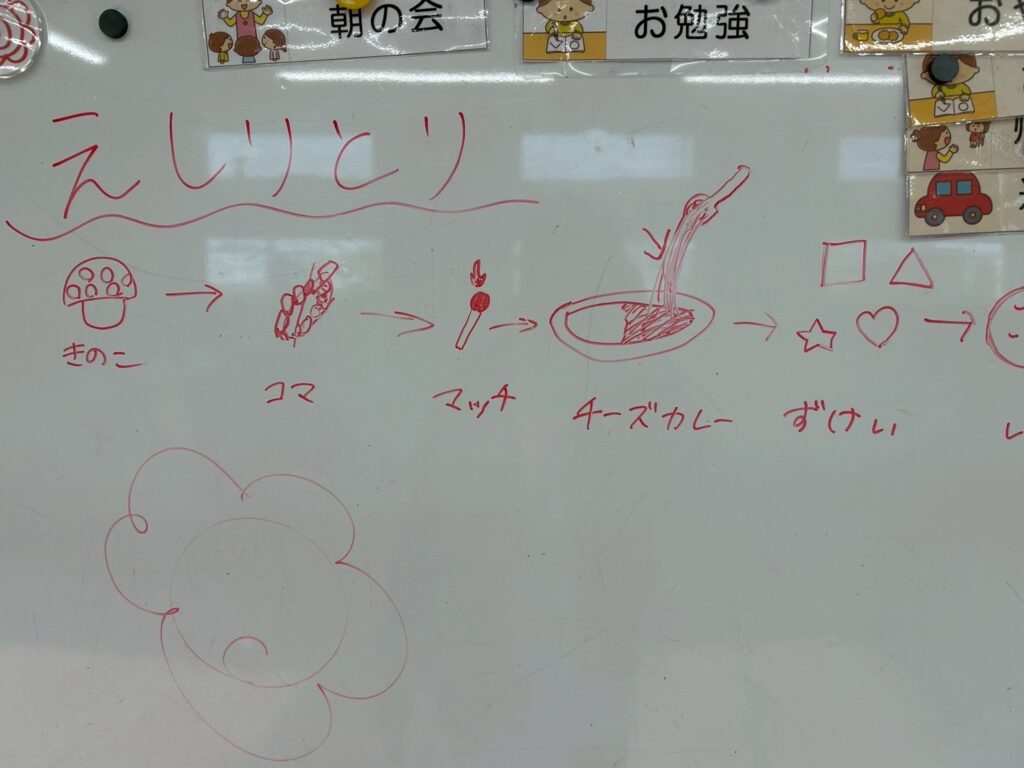 朝の会
お勉強
えしりとり
きのこ
コマ
マッチ
チーズカレー
ずけい